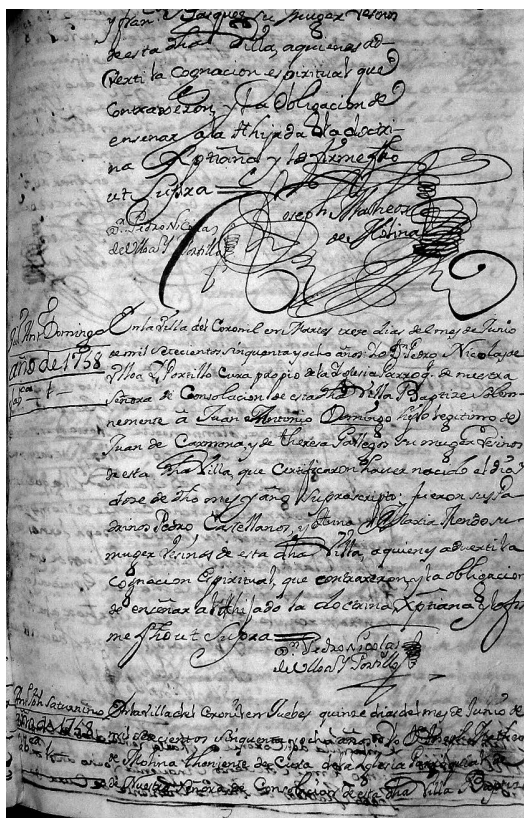 y Juana Vasques su muger Vesinos
de esta dha Villa, aquienes ad-
verti la Cognacion espiritual que
Contraxeron, y la Obligacion de
enseñar a la Ahijada la doctri-
na Xptiana y lo firme fho
ut Supra
Joseph Matheos
de Molina
Dn. Pedro Nicolas
de Ulloa y Portillo
Jn. Antt. Domingo
año de 1758
En la Villa del Coronil en Martes trese dias del mes de Junio
de mil setecientos sinquenta y ocho años Yo Dn. Pedro Nicolas de
Ulloa y Portillo Cura propio de la Iglesia Parroql. de nuestra
Señora de Consolacion de esta dha Villa Baptize solem-
nemente â Juan Antonio Domingo hijo legitimo de
Juan de Carmona, y de theresa Gallegos su muger Vesinos
de esta dha Villa, que Certificaron haver nacido el dia
dose de dho mes y año suprascripto: fueron sus pa-
drinos Pedro Castellanos, y Maria su
muger Vesinos de esta dha Villa, a quienes adverti la
Cognacion Espiritual, que contraxeron, y la obligacion
de enseñar al Ahijado la doctrina Xptiana y lo fir
me fho ut Supra
Dn. Pedro Nicolas
de Ulloa y Portillo
Saturnino
año de 1758
En la Villa del Coronil en Jueves quinse dias del mes de Junio de
mil setecientos sinquenta y ocho años Yo Dn. Joseph Matheos
de Molina theniente de Cura de la Iglesia Parroquial
de Nuestra Señora de Consolacion de esta dha Villa Baptize